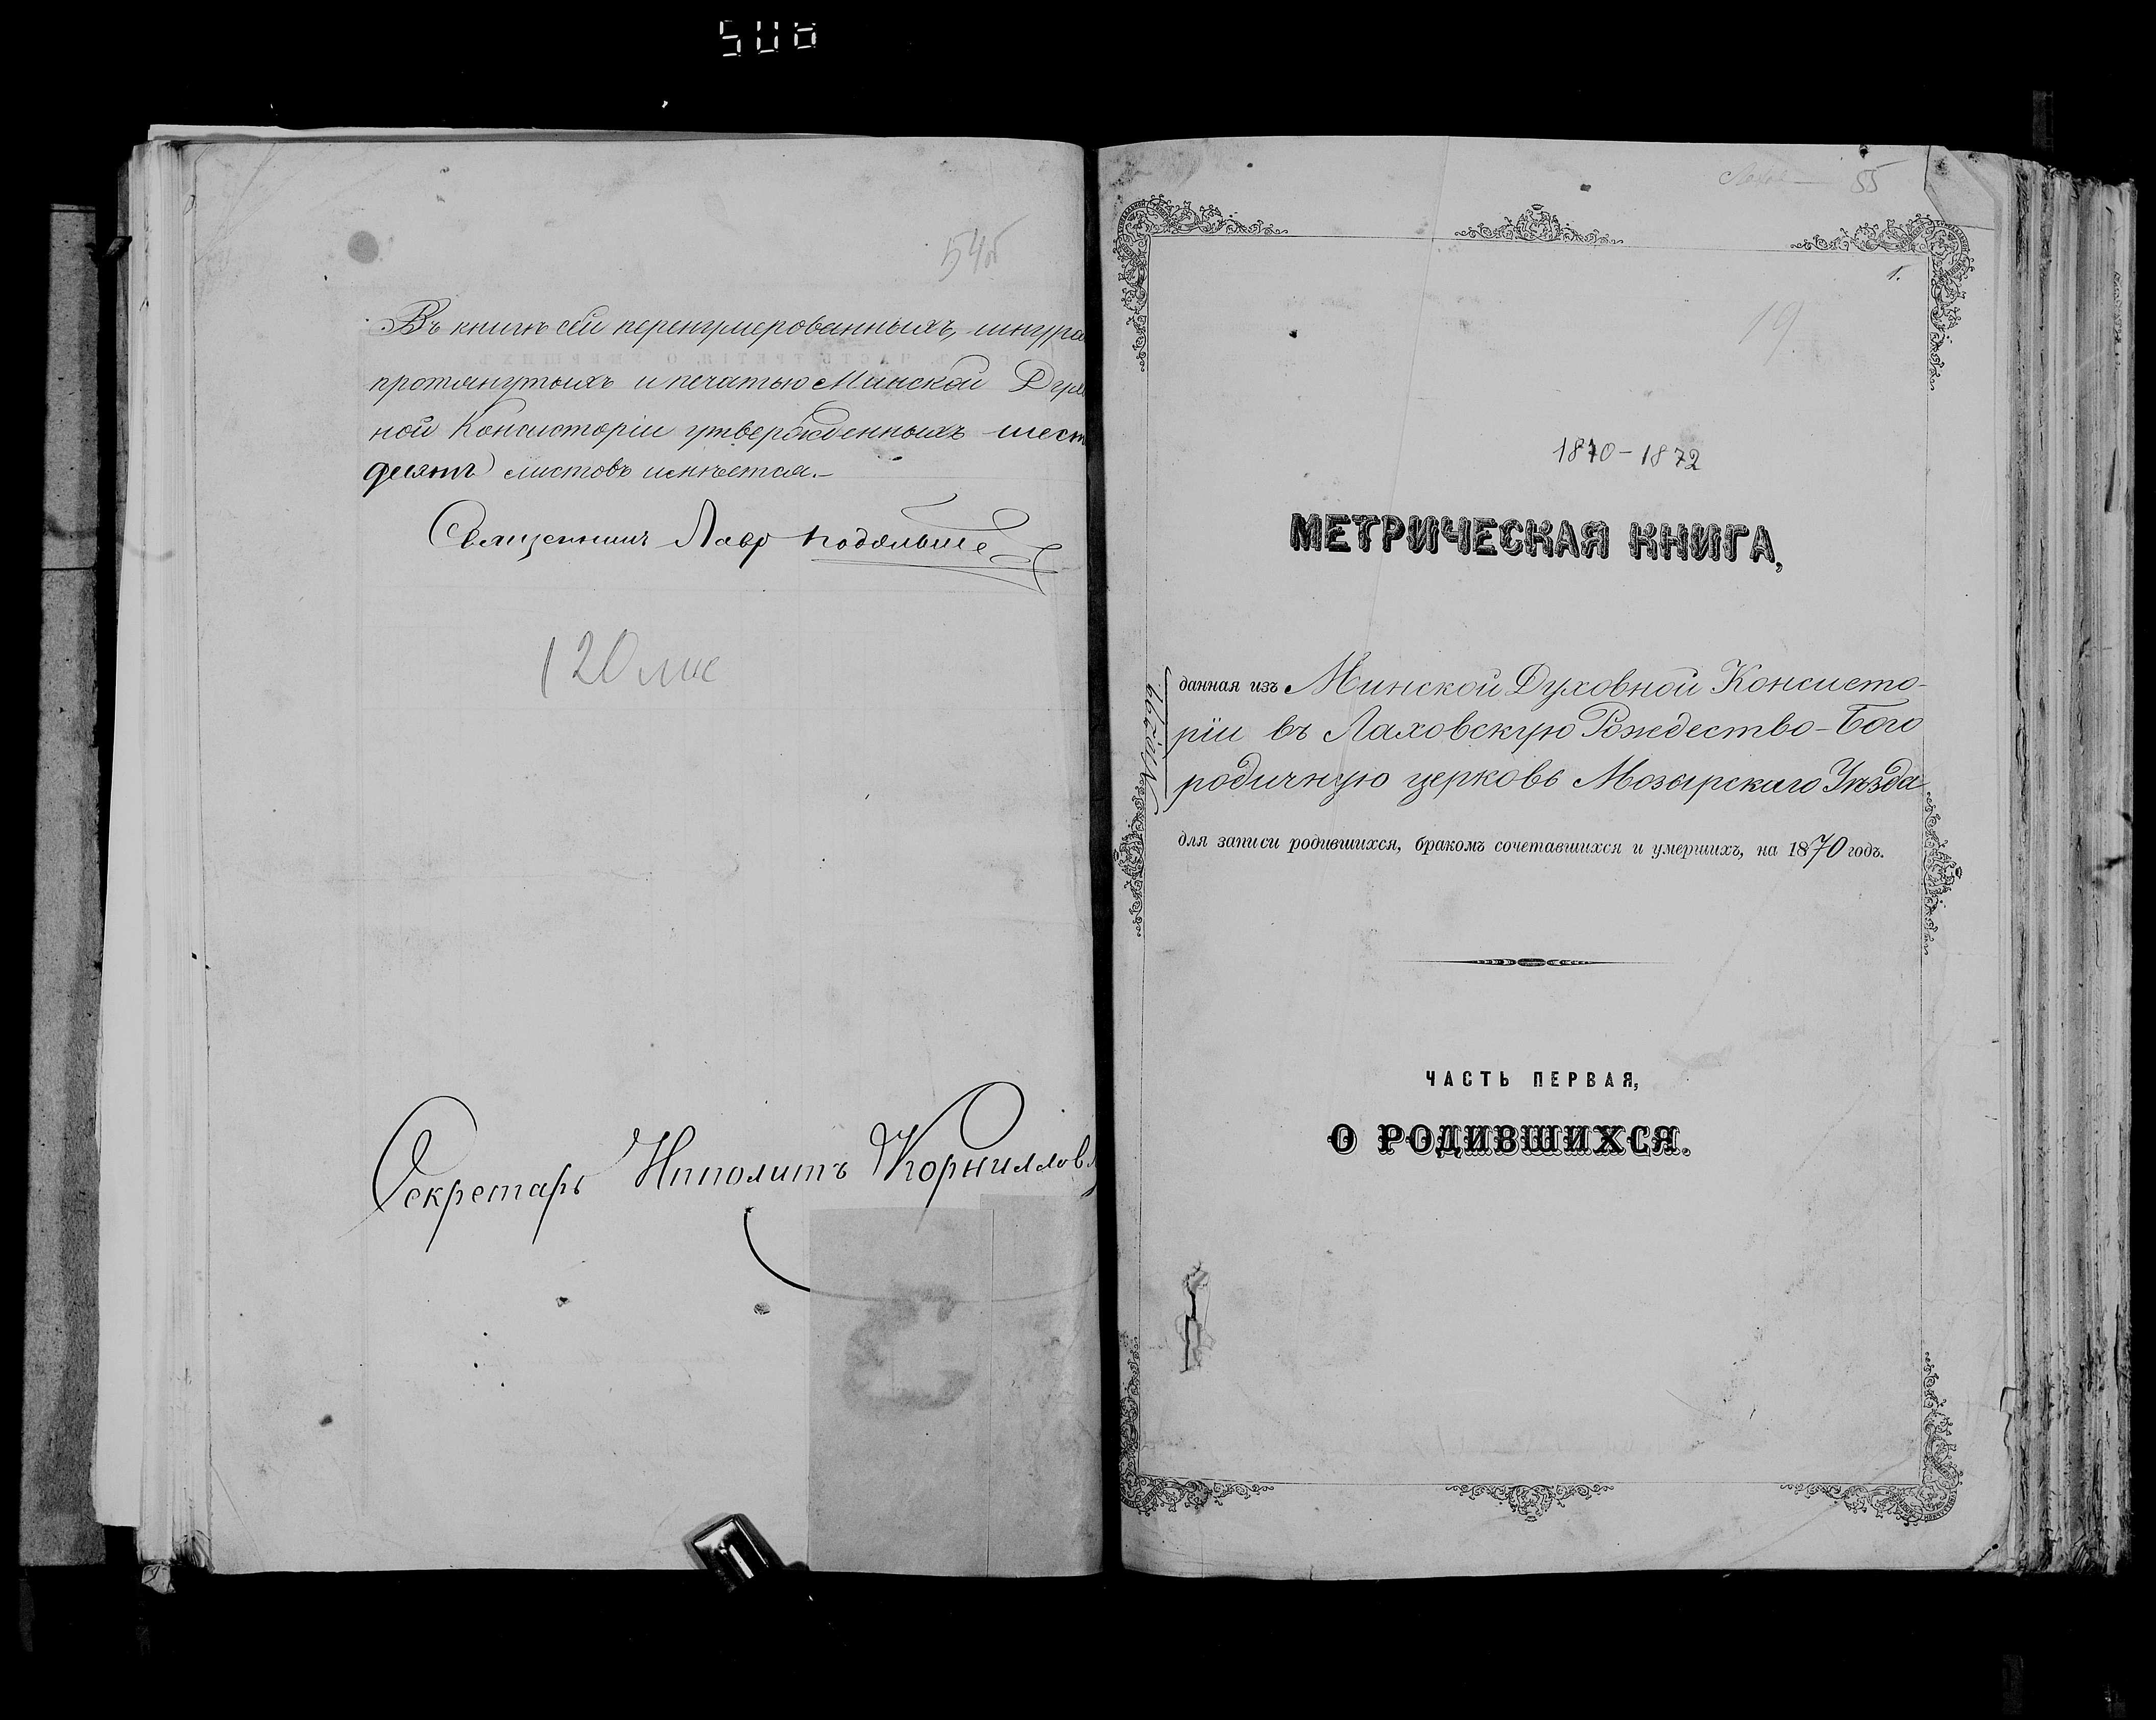 54об
Въ книгѣ сей перенумерованныхъ, шнура
протянутыхъ и печатью Минской Духо
ной Консисторіи утвержденныхъ шест
десятъ листовъ имѣется.-
Священникъ Лавр
120 лис
Секретарь Ипполитъ Корнилловъ
55
1.
19
1870-1872
МЕТРИЧЕСКАЯ КНИГА,
данная изъ Минской Духовной Консисто-
ріи въ Лаховскую Рождество-Бого
родичную церковь Мозырскаго Уѣзда
для записи родившихся, бракомъ сочетавшихся и умершихъ, на 1870 годъ.
ЧАСТЬ ПЕРВАЯ,
О РОДИВШИХСЯ.